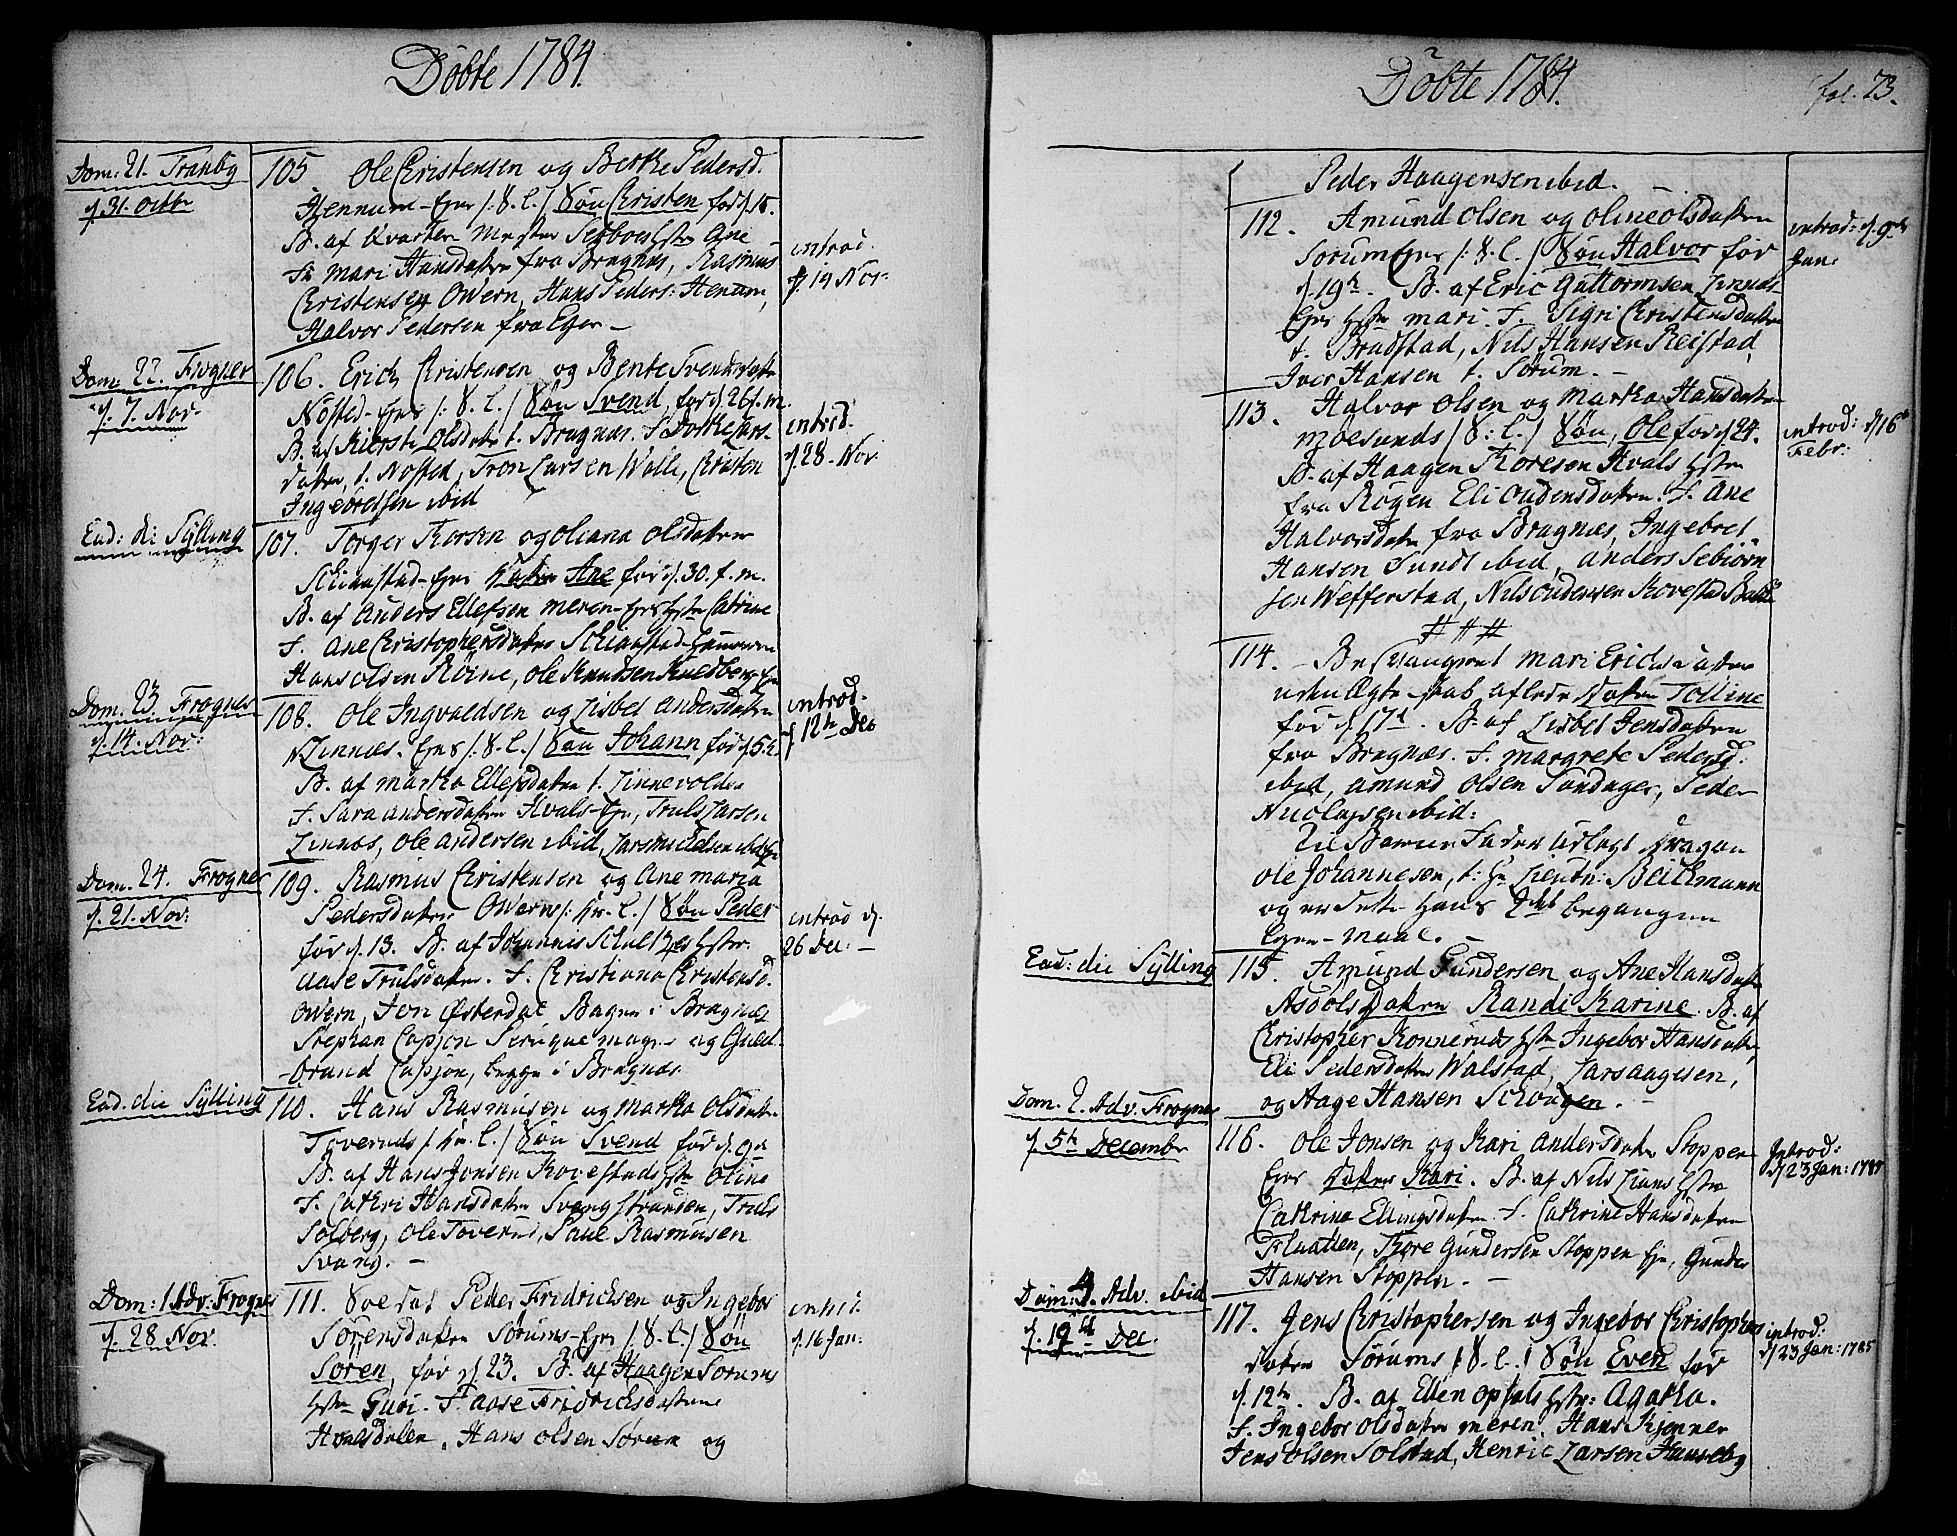 Döbte 1784.
Dom: 21. Tranby
d. 31. Octbr
105 Ole Christensen og Berthe Pedersd.
Hennum-Ejer /: S. L. / Søn Christen fød d. 15.
B. af Kvarteer Mester Hstr Ane
F. Mari Hansdatter fra Bragnæs, Rasmus
Christensen Owern, Hans Peders: Henum,
Halvor Pedersen fra Eger –
introd.
d. 19 Nov:
Dom. 22. Frogner
d. 7. Nov.
106. Erich Christensen og Bente Svendsdatter
Nøsted-Ejer /: S. L. / Søn Svend, fød d. 26 f. m.
B. af Kiersti Olsdatr t. Bragnæs. F. Dorthe Lars-
datter, t. Nøsted, Tron Larsen Walle, Christen
Ingebretsen ibid
introd.
d. 28. Nov.
Ead: di Sylling
107. Torger Thorsen og Oleana Olsdatter
Schiaastad-Ejer Datter Ane fød d. 30. f. m.
B. af Anders Ellefsen Meren-Ejers Hstr Catrine
F. Ane Christophersdatter Schiaastad
Hans Olsen Røine, Ole Knudsen
Dom. 23. Frogner
d. 14. Nov:
108. Ole Ingvaldsen og Lisbet Andersdatter
Linnes-Ejer /: S. L. / Søn Johann fød d. 5te
B. af Martha Ellefsdatter t. Linnevolden
F. Sara Andersdatter Hvals-Eje, Truls Larsen
Linnes, Ole Andersen ibid, Lars
introd.
d. 12te Dec
Dom. 24. Frogner
d. 21. Nov:
109. Rasmus Christensen og Ane Maria
Pedersdatter Owern /: Hr. L. / Søn Peder
fød d. 13. B. af Johannis Schultzes Hstr.
Aase Trulsdatter. F. Christiana Christensd.
Owern, Jon Østerdal Bager i Bragnæs
Stephan Capjon Peruquemager og Guld-
brand Capjon, begge i Bragnæs
introd d.
26 Dec: –
Ead. die Sylling
110. Hans Rasmusen og Martha Olsdatter
Toveruds /: Hr. L. / Søn Svend fød d. 9de
B. af Hans Jensen Kovestads Hstr Oline
F. Cathri Hansdatter Svangstranden, Truls
Solberg, Ole Toverud, Paul Rasmusen
Svang. –
Dom: 1 Adv: Frogner
d. 28 Nov.
111. Soldat Peder Fridrichsen og Ingebor
Sörensdatter Sørums-Eje /: S. L. / Søn
Sören, fød d. 23. B. af Haagen Sørums
Hstr Guri. F. Aase Fridrichsdatter
Hvalsdalen, Hans Olsen Sørum og
introd.
d. 16 Jan:
Döbte 1784.
fol. 73.
Peder Haagensen ibid. –
112. Amund Olsen og Oline Olsdatter
Sørum Ejer /: S. L. / Søn Halvor fød
d. 19de. B. af Eric Guttormsen Linnes-
Ejer Hstr Mari. F. Sigri Christensdatter
t. Bradstad, Nils Hansen Reistad,
Iver Hansen t. Sørum. –
introd: d. 9de
Jan:
113. Halvor Olsen og Martha Hansdatter
Möesunds /: S: L. / Søn, Ole fød d. 24.
B. af Haagen Thoresen Hvals Hstr
fra Røgen Eli Oudensdatter. F. Ane
Halvorsdatter fra Bragnæs, Ingebret
Hansen Sundt ibid, Anders Sebiörn
sen Wefferstad, Nils Oudensen Kovestad
###
introd: d. 16de
Febr:
114. – Besvangret Mari Erichsdatter
uden Ægteskab aflede Datter Tolline
fød d. 17d. B. af Lisbet Jensdatter
fra Bragnæs. F. Margrete Pedersd.
ibid, Amund Olsen Søndager, Peder
Nicolaysen ibid:
Til Barne Fader udlagt Dragon
Ole Johannesen, t: Hr Lieutn: Beichmann
og er dette hans 2det begangne
Lejer-Maal. –
Ead: die Sylling
115. Amund Gundersen og Ane Hansdatter
Asdøls Datter Randi Karine. B. af
Christopher Konneruds Hstr Ingebor Hansdatter
Eli Pedersdatter Walstad, Lars Aagesen,
og Aage Hansen Schougen. –
Dom. 2. Adv. Frogner
d. 5te Decembr
116. Ole Jonsen og Kari Andersdatter Stoppen
Ejer Datter Kari. B. af Nils Lians Hstr
Cathrina Ellingsdatter. F. Cathrine Hansdatter
Flaatten, Thore Gundersen Stoppen Eje, Gunder
Hansen Stoppen. –
Introd:
d. 23 Jan: 1785
Dom: 4. Adv. ibid
d. 19de Dec.
117. Jens Christophersen og Ingebor Christophers
datter Sørums /: S. L. / Søn Even fød
d. 12te. B. af Ellen Opsals Hstr: Agatha.
F. Ingebor Olsdatter Meren, Hans Kjønner
Jens Olsen Solstad, Henric Larsen
introd:
d. 23 Jan: 1785